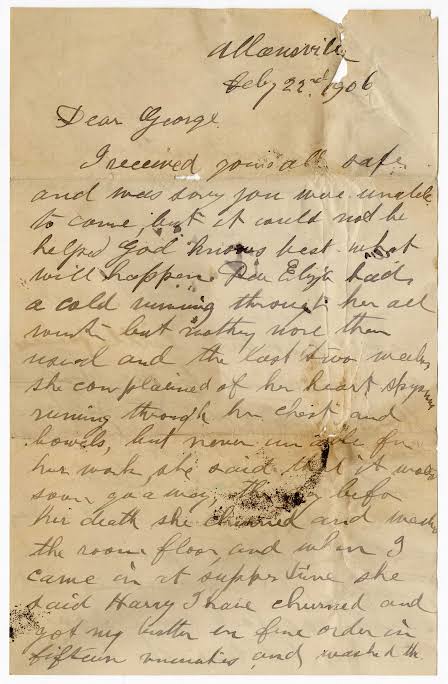 Allensville
Feby 22nd 1906
Dear George
I received yours all safe
and was sorry you were unable
to come, but it could not be
helped God knows best what
will happen Eliza had
a cold running through her all
but nothing more than
usual and the last two weeks
she complained of her heart
running through her chest and
bowels, but never unable for
her work, she said that it would
soon go away, the day befo
her death she churned and
the room floor, and when I
came in at supper time she
said Harry I have churned and
got my butter in fine order in
fifteen minutes and washed th